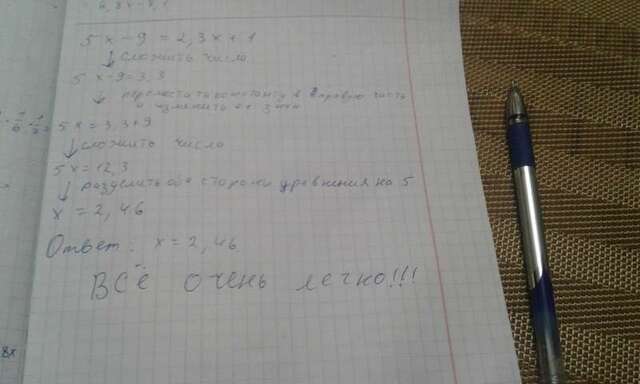 6,8x-8,1
5x-9=2,3x+1
↓ сложить число
5x-9=3,3
↓ перенести константу в правую часть
и изменить её знак
5x=3,3+9
↓ сложить число
5x=12,3
↓ разделить обе стороны уравнения на 5
x=2,46
Ответ: x=2,46
ВСЁ ОЧЕНЬ ЛЕГКО!!!
8x